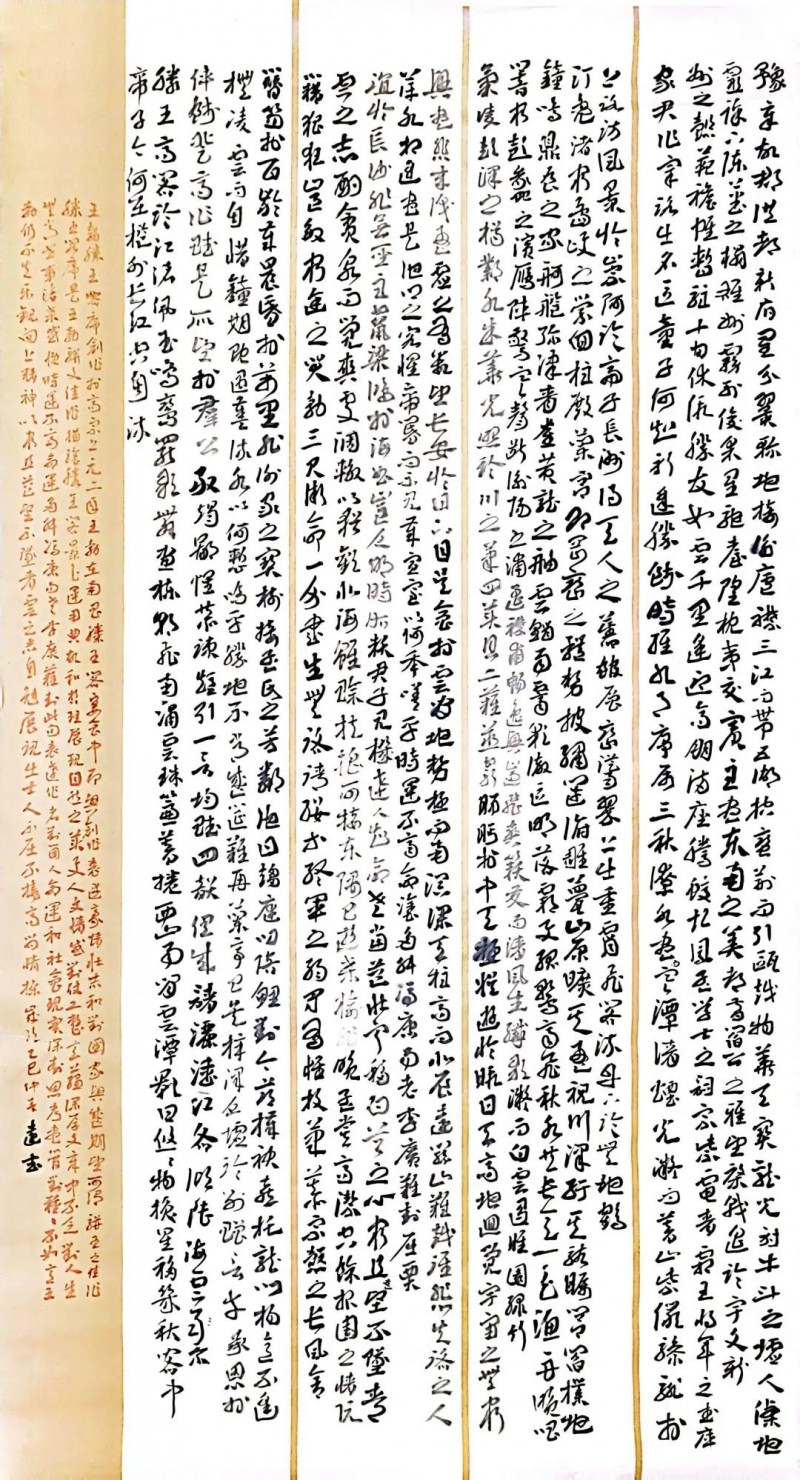 豫章故郡洪都新府星分翼軫地接衡廬襟三江而帶五湖控蠻荊而引甌越物華天寶龍光射牛斗之墟人傑地
靈徐下陳蕃之榻雄州霧列俊采星馳臺隍枕夷夏交賓主盡東南之美都督閻公之雅望棨戟遙臨宇文新
州之懿範襜帷暫駐十旬休假勝友如雲千里逢迎高朋滿座騰蛟起鳳孟學士之詞宗紫電青霜王將軍之武庫
家君作宰路出名區童子何知躬逢勝餞時維九月序屬三秋潦水盡寒潭清煙光凝而暮山紫儼驂騑於
上路訪風景於崇阿臨帝子長洲得天人之舊館層巒聳翠上出重霄飛閣流丹下臨無地鶴
汀鳧渚窮島嶼之縈迴桂殿蘭宮即岡巒之體勢披繡闥俯雕甍山原曠其盈視川澤紆其駭矚閭閻撲地
鐘鳴鼎食之家舸艦彌津青雀黃龍之舳雲銷雨霽彩徹區明落霞與孤鶩齊飛秋水共長天一色漁舟唱晚
響窮彭蠡之濱雁陣驚寒聲斷衡陽之浦遙襟甫暢逸興遄飛爽籟發而清風生纖歌凝而白雲遏睢園綠竹
氣凌彭澤之樽鄴水朱華光照臨川之筆四美具二難並窮睇眄於中天極娛遊於暇日天高地迥覺宇宙之無窮
興盡悲來識盈虛之有數望長安於日下目吳會於雲間地勢極而南溟深天柱高而北辰遠關山難越誰悲失路之人
萍水相逢盡是他鄉之客懷帝閽而不見奉宣室以何年嗟乎時運不齊命途多舛馮唐易老李廣難封屈賈
誼於長沙非無聖主竄梁鴻於海曲豈乏明時所賴君子見機達人知命老當益壯寧移白首之心窮且益堅不墜青
雲之志酌貪泉而覺爽處涸轍以猶歡北海雖賒扶搖可接東隅已逝桑榆非晚孟嘗高潔空餘報國之情阮
籍猖狂豈效窮途之哭勃三尺微命一介書生無路請纓等終軍之弱冠有懷投筆慕宗愨之長風舍
簪笏於百齡奉晨昏於萬里非謝家之寶樹接孟氏之芳鄰他日趨庭叨陪鯉對今茲捧袂喜托龍門楊意不逢
撫凌雲而自惜鐘期既遇奏流水以何慚嗚呼勝地不常盛筵難再蘭亭已矣梓澤丘墟臨別贈言幸承恩於
偉餞登高作賦是所望於群公敢竭鄙懷恭疏短引一言均賦四韻俱成請灑潘江各傾陸海云爾
滕王高閣臨江渚佩玉鳴鸞罷歌舞畫棟朝飛南浦雲珠簾暮捲西山雨閒雲潭影日悠悠物換星移幾秋閣中
帝子今何在檻外長江空自流
王勃滕王閣序創作於高宗上元二年王勃在南昌滕王閣宴會中即興創作表達豪情壯志和對國家興盛期望
滕王閣序是王勃駢文佳作描繪滕王閣景色運用典故和